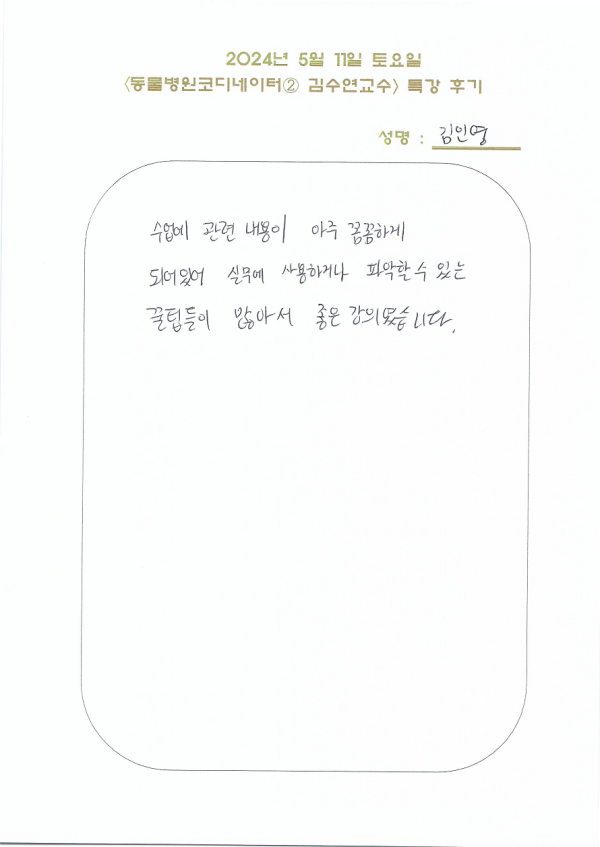 2024년 5월 11일 토요일
<동물병원코디네이터② 김수연교수> 특강 후기
성명 : 김인영
수업에 관련 내용이 아주 꼼꼼하게
되어있어 실무에 사용하거나 파악할 수 있는
꿀팁들이 많아서 좋은 강의였습니다.